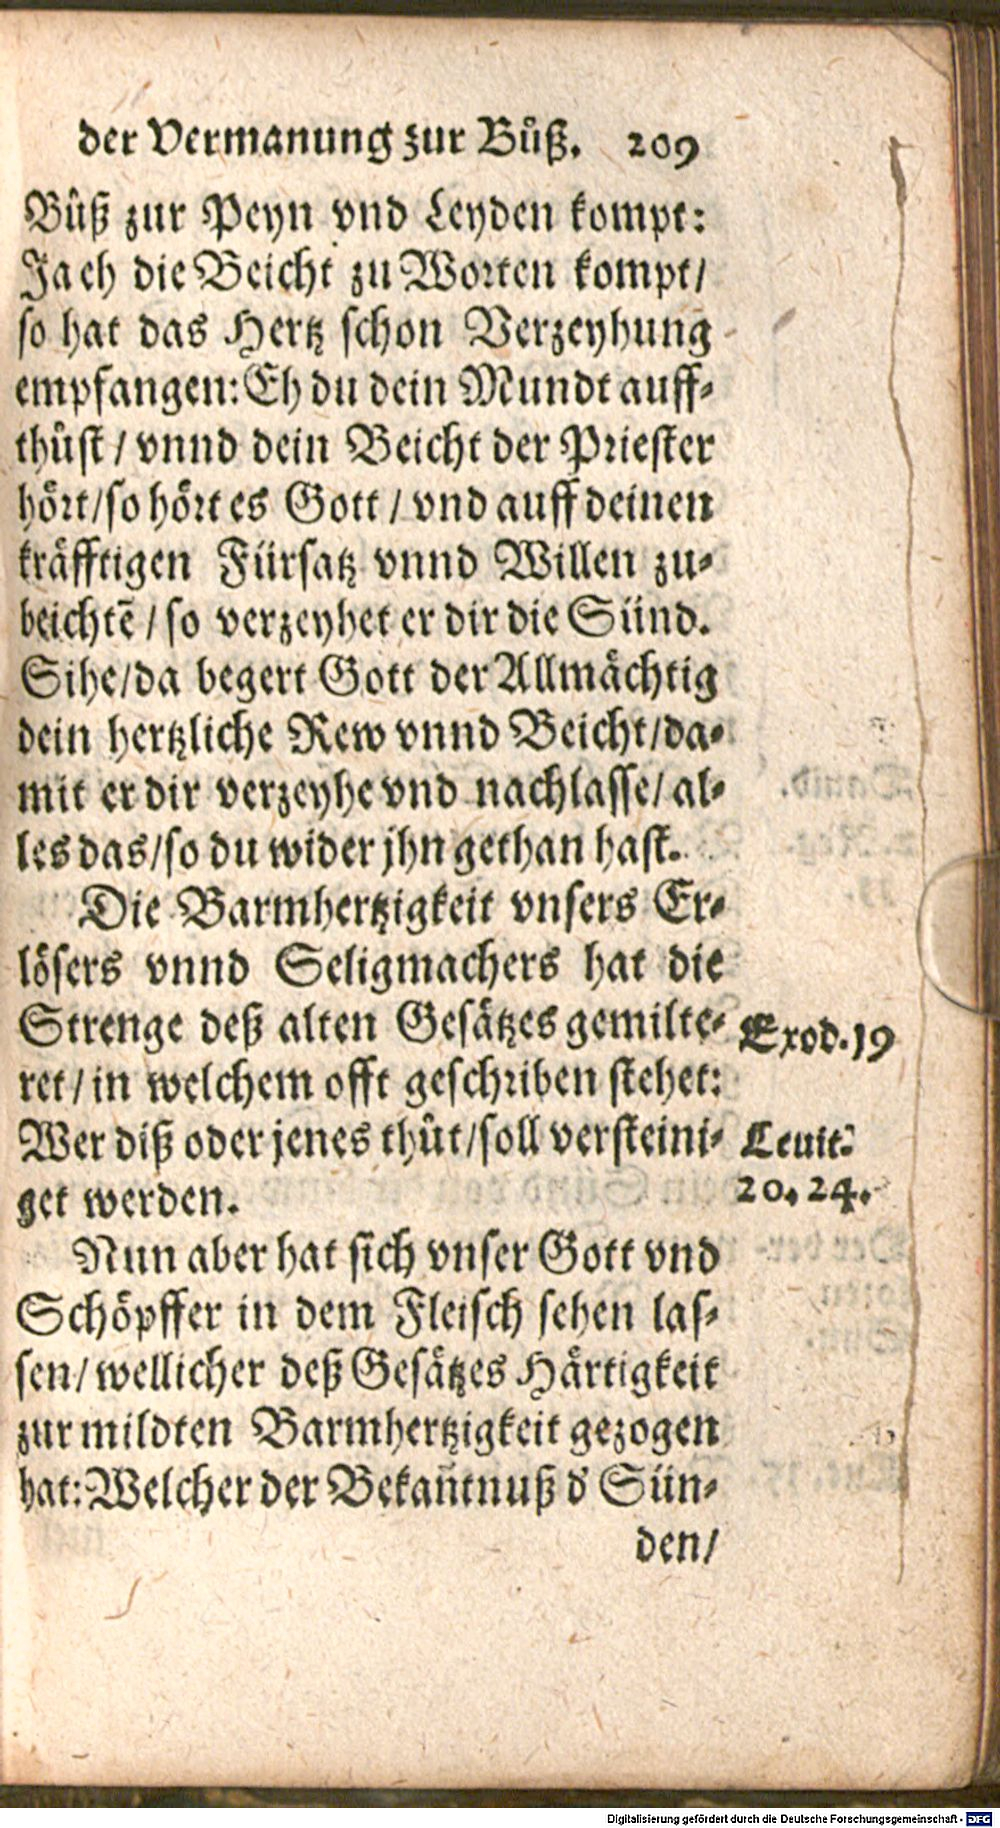 der Vermanung zur Bůß. 209
Bůß zur Peyn vnd Leyden kompt:
Ja eh die Beicht zu Worten kompt/
so hat das Hertz schon Verzeyhung
empfangen: Eh du dein Mundt auff⸗
thůst / vnnd dein Beicht der Priester
hört/ so hört es Gott / vnd auff deinen
kräfftigen Fürsatz vnnd Willen zu⸗
beichtē / so verzeyhet er dir die Sünd.
Sihe/ da begert Gott der Allmächtig
dein hertzliche Rew vnnd Beicht/ da⸗
mit er dir verzeyhe vnd nachlasse/ al⸗
les das/ so du wider jhn gethan hast.
Die Barmhertzigkeit vnsers Er⸗
lösers vnnd Seligmachers hat die
Strenge deß alten Gesätzes gemilte⸗ Exod. 19
ret/ in welchem offt geschriben stehet:
Wer diß oder jenes thůt/ soll versteini⸗ Leuit.
get werden. 20. 24.
Nun aber hat sich vnser Gott vnd
Schöpffer in dem Fleisch sehen las⸗
sen/ wellicher deß Gesätzes Härtigkeit
zur mildten Barmhertzigkeit gezogen
hat: Welcher der Bekañtnuß d' Sün⸗
den/
Digitalisierung gefördert durch die Deutsche Forschungsgemeinschaft - DFG